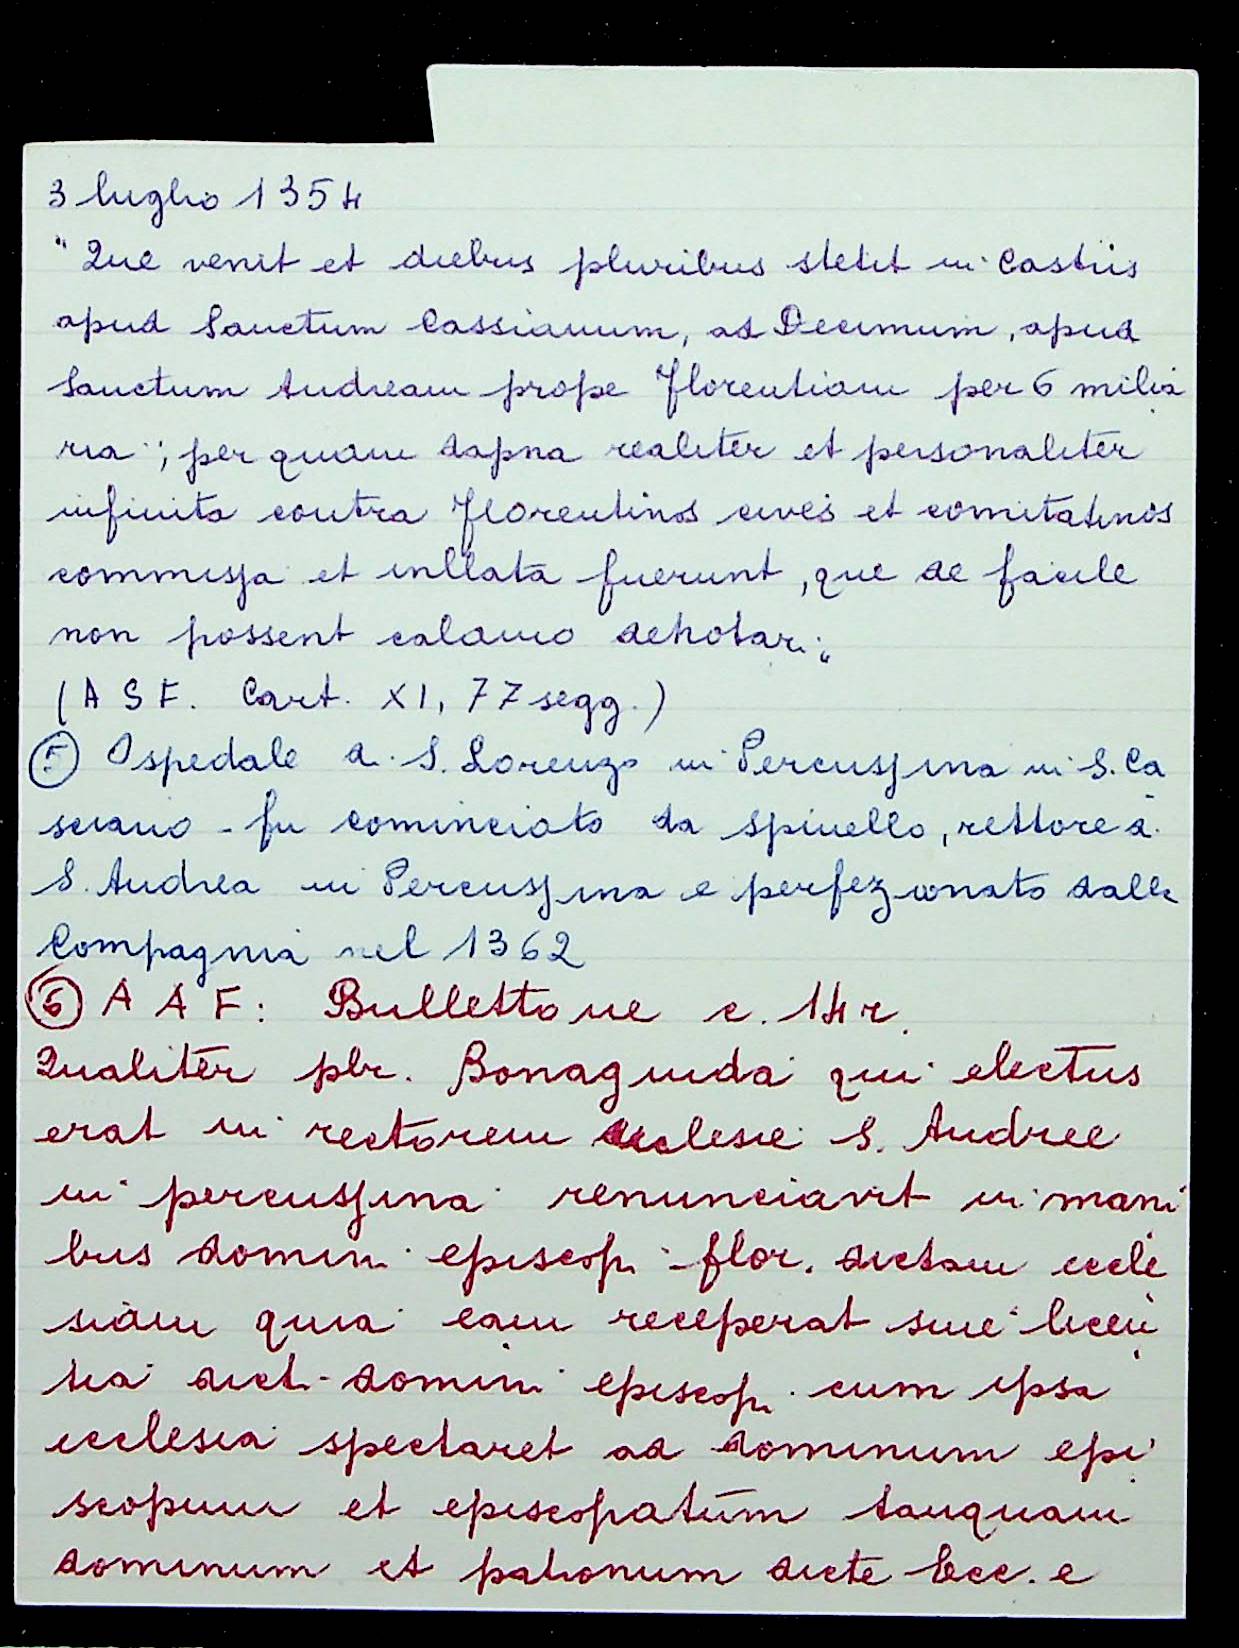 3 luglio 1354
"Que venit et diebus pluribus stetit in Castris
apud Sanctum Cassianum, ad Decimum, apud
Sanctum Andream prope Florentiam per 6 milia
ria"; per quam dapna realiter et personaliter
infinita contra Florentinos cives et comitatinos
commissa et inllata fuerunt, que de facile
non possent calamo dehotari"
(A S F. Cart. XI, 77 segg.)
⑤ Ospedale di S. Lorenzo in Percussina in S. Ca
sciano - fu cominciato da Spinello, rettore di
S. Andrea in Percussina e perfezionato dalla
Compagnia nel 1362
⑥ A A F: Bullettone c. 14 r.
Qualiter pbr. Bonaguida qui electus
erat in rectorem ecclesie S. Andree
in percussina renunciavit in mani
bus domini episcopi flor. dictam eccle
siam quia eam receperat sine licen
tia dicti domini episcopi cum ipsa
ecclesia spectaret ad dominum epi
scopum et episcopatum tanquam
dominum et patronum dicte Ecc. e